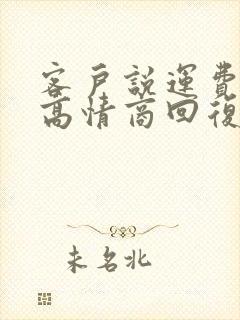 客戶說運費
高情商回復
未名北